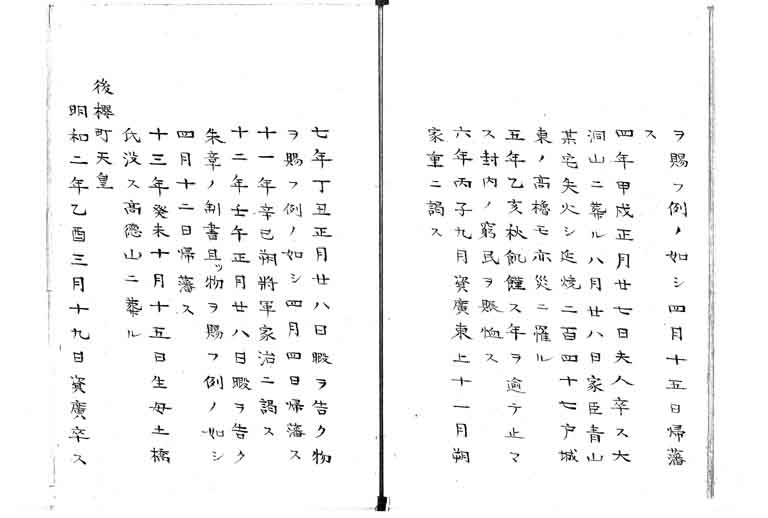 ヲ賜フ例ノ如シ四月十五日帰藩
ス
四年甲戌正月廿七日夫人卒ス大
洞山ニ葬ル八月廿八日家臣青山
某宅失火シ延焼二百四十七戸城
東ノ高櫓モ亦災ニ罹ル
五年乙亥秋飢饉ス年ヲ逾テ止マ
ス封内ノ窮民ヲ賑恤ス
六年丙子九月資廣東上十一月朔
家重ニ謁ス
七年丁丑正月廿八日暇ヲ告ク物
ヲ賜フ例ノ如シ四月四日帰藩ス
十一年辛巳朔將軍家治ニ謁ス
十二年壬午正月廿八日暇ヲ告ク
朱章ノ制書且ッ物ヲ賜フ例ノ如シ
四月十二日帰藩ス
十三年癸未十月十五日生母土橋
氏没ス高德山ニ葬ル
後櫻町天皇
明和二年乙酉三月十九日資廣卒ス